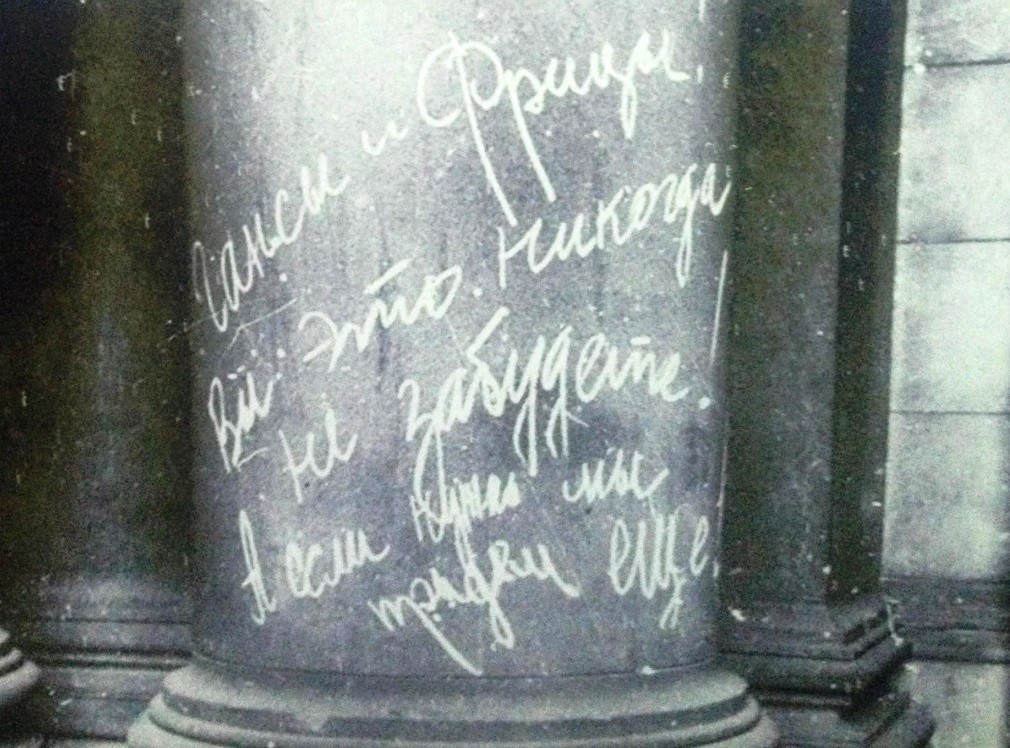 Гансы и Фрицы.
Вы это. никогда
не забудете!
А если нужно мы
еще.